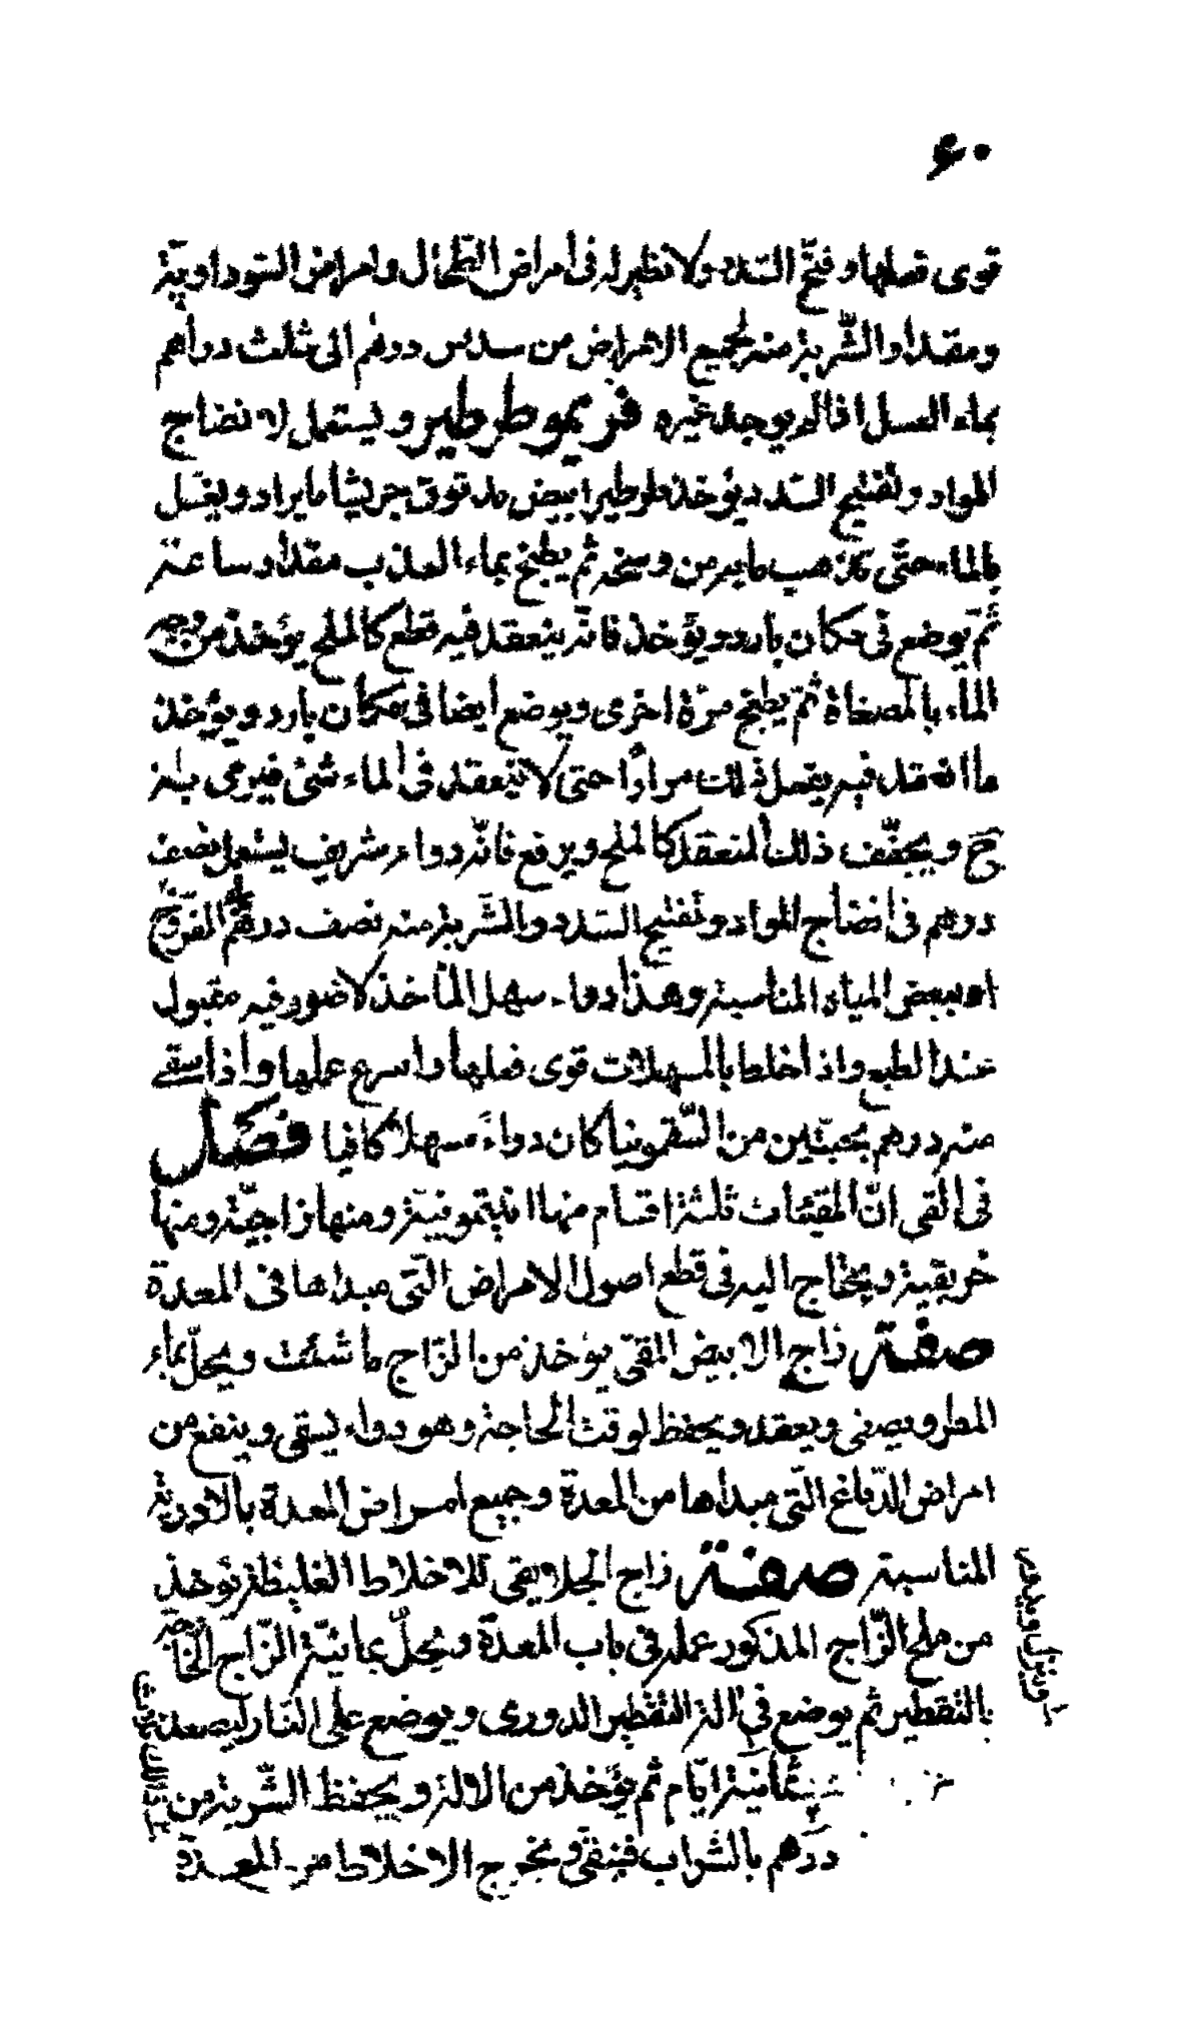 ۶۰
قوى فعلها وفتّح السّدد ولا نظير له فى امراض الطّحال وامراض السّوداويّة
ومقدار الشّربة منه لجميع الامراض من سدس درهم الى ثلث دراهم
بماء العسل اذا لم يوجد غيره قريمو طرطير ويستعمل لانضاج
المواد وتفتيح السّدد يؤخذ طرطير ابيض مدقوق جريشا ما يراد ويغسل
بالماء حتّى تذهب ما به من وسخه ثم يطبخ بماء العذب مقدار ساعة
ثمّ يوضع فى مكان بارد ويؤخذ فانّه ينعقد فيه قطع كالملح يؤخذ من وجه
الماء بالمصفاة ثمّ يطبخ مرّة اخرى ويوضع ايضا فى مكان بارد ويؤخذ
ما انعقد فيه يفعل ذلك مرارًا حتى لا ينعقد فى الماء شئ فيرمى به
ح ويجفّف ذلك المنعقد كالملح ويرفع فانّه دواء شريف يستعمل نصف
درهم فى انضاج المواد وتفتيح السّدد والشّربة منه نصف درهم بماء الفرّوج
او ببعض المياه المناسبة وهذا دواء سهل المأخذ لا ضرر فيه مقبول
عند الطبع واذا خلط بالمسهلات قوى فعلها واسرع عملها واذا سقى
منه درهم بحبّتين من السّقمونيا كان دواءً مسهلا كافيا فصل
فى القى انّ المقيئات ثلثة اقسام منها انتيمونيّة ومنها زاجيّة ومنها
خربقية ويحتاج اليه فى قطع اصول الامراض الّتى مبداها فى المعدة
صفة زاج الابيض المقىّ يؤخذ من الزّاج ما شئت ويحلّ بماء
المطر ويصفى ويعقد ويحفظ لوقت الحاجة وهو دواء يسقى وينفع من
امراض الدّماغ الّتى مبداها من المعدة وجميع امراض المعدة بالادوية
المناسبة صفة زاج الجلا يقى للاخلاط الغليظة يؤخذ
من ملح الزّاج المذكور عمله فى باب المعدة ويحلّ بمائيّة الزّاج الخارجة
بالتقطير ثم يوضع فى الة التقطير الدورى ويوضع على النّار ليصعد
ثمانية ايّام ثم يؤخذ من الالة ويحفظ الشّربة من
درهم بالشراب فينقى ويخرج الاخلاط من المعدة
وينزل